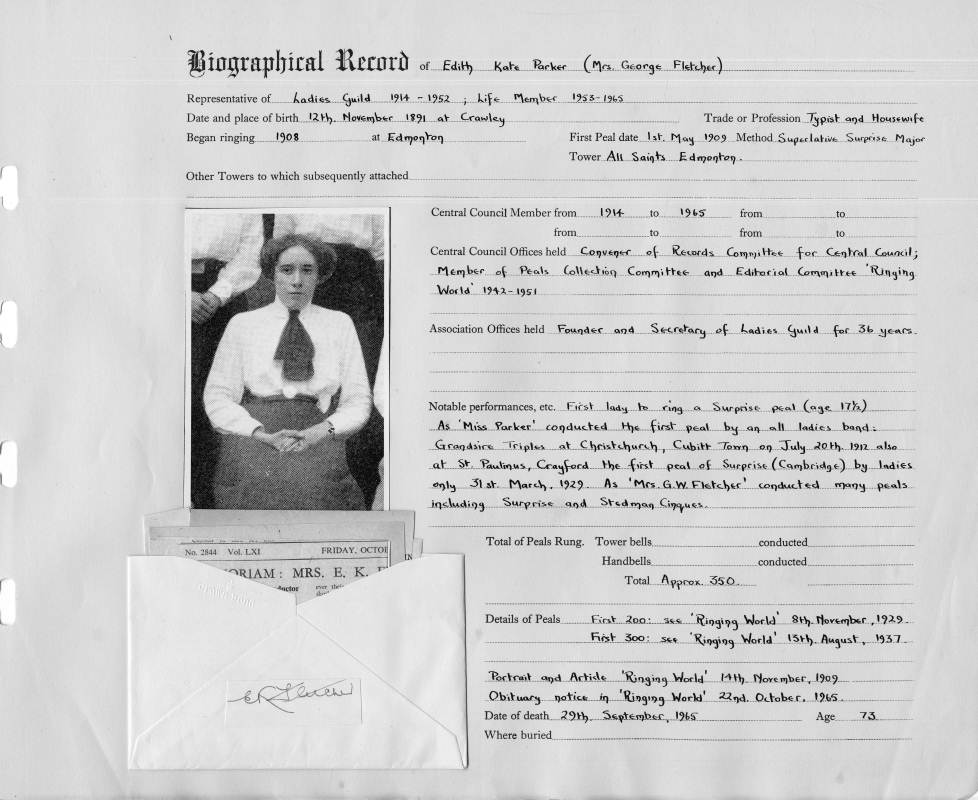 Biographical Record of Edith Kate Parker (Mrs. George Fletcher)
Representative of Ladies Guild 1914 - 1952 ; Life Member 1953-1965
Date and place of birth 12th. November 1891 at Crawley Trade or Profession Typist and Housewife
Began ringing 1908 at Edmonton First Peal date 1st. May 1909 Method Superlative Surprise Major
Tower All Saints Edmonton.
Other Towers to which subsequently attached
Central Council Member from 1914 to 1965 from to
from to from to
Central Council Offices held Convener of Records Committee for Central Council;
Member of Peals Collection Committee and Editorial Committee 'Ringing
World' 1942-1951
Association Offices held Founder and Secretary of Ladies Guild for 36 years.
Notable performances, etc. First lady to ring a Surprise peal (age 17½)
As 'Miss Parker' conducted the first peal by an all ladies band:
Grandsire Triples at Christchurch, Cubitt Town on July 20th. 1912 also
at St. Paulinus, Crayford the first peal of Surprise (Cambridge) by ladies
only 31st. March, 1929. As 'Mrs. G.W. Fletcher' conducted many peals
including Surprise and Stedman Cinques.
Total of Peals Rung. Tower bells conducted
Handbells conducted
Total Approx. 350.
No. 2844 Vol. LXI FRIDAY, OCTO
ORIAM: MRS. E. K. F
Details of Peals First 200: see 'Ringing World' 8th. November, 1929.
First 300: see 'Ringing World' 13th. August, 1937.
Portrait and Article 'Ringing World' 14th November, 1909
Obituary notice in 'Ringing World' 22nd. October, 1965.
Date of death 29th. September, 1965 Age 73
Where buried
E K Fletcher